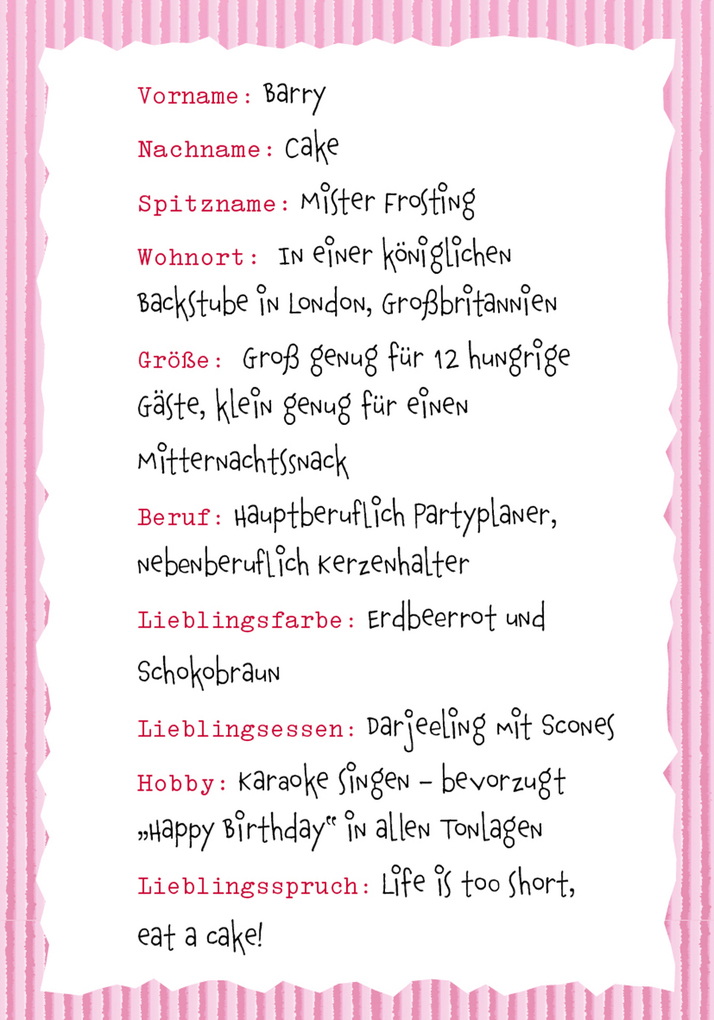 Vorname: Barry
Nachname: Cake
Spitzname: Mister Frosting
Wohnort: In einer königlichen
Backstube in London, Großbritannien
Größe: Groß genug für 12 hungrige
Gäste, klein genug für einen
Mitternachtssnack
Beruf: Hauptberuflich Partyplaner,
nebenberuflich Kerzenhalter
Lieblingsfarbe: Erdbeerrot und
Schokobraun
Lieblingsessen: Darjeeling mit Scones
Hobby: Karaoke singen – bevorzugt
„Happy Birthday“ in allen Tonlagen
Lieblingsspruch: Life is too short,
eat a cake!